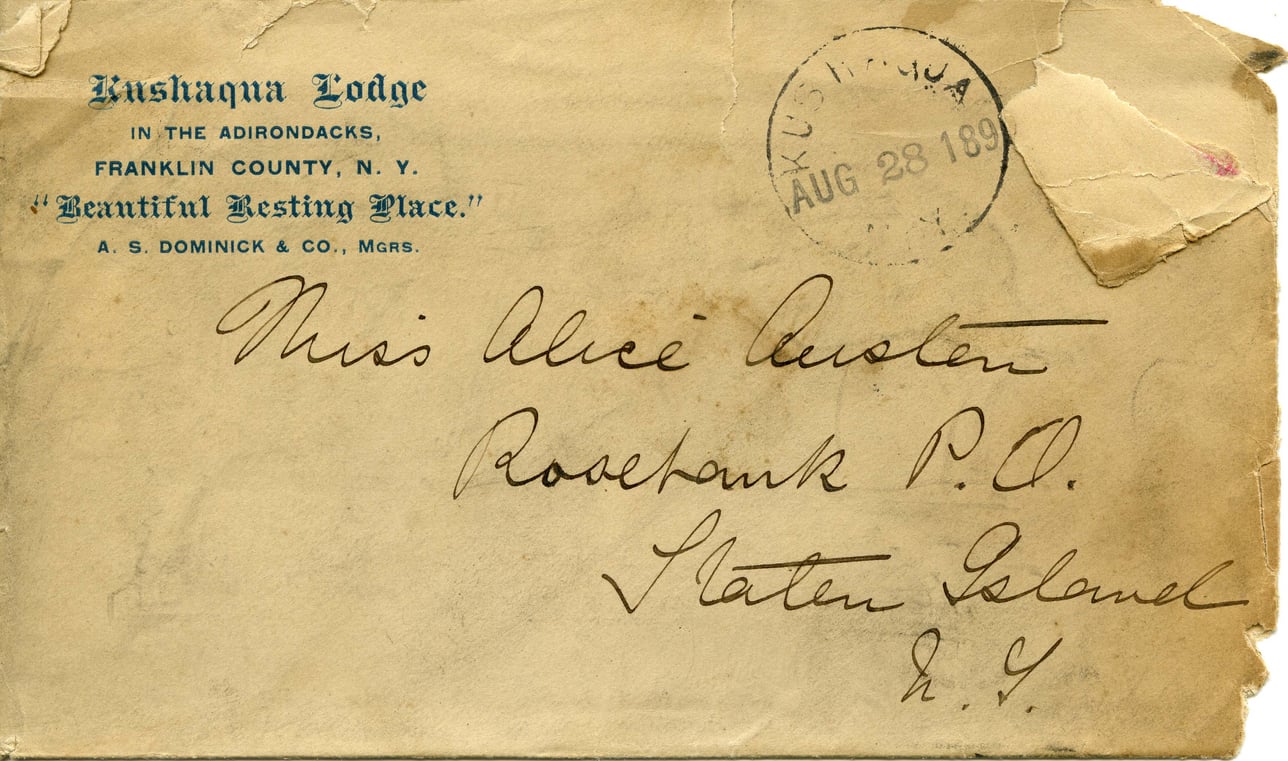 Kushaqua Lodge
IN THE ADIRONDACKS,
FRANKLIN COUNTY, N. Y.
"Beautiful Resting Place."
A. S. DOMINICK & CO., MGRS.
KUSHAQUA
AUG 28 189
N.Y.
Miss Alice Austen
Rosebank P. O.
Staten Island
N. Y.